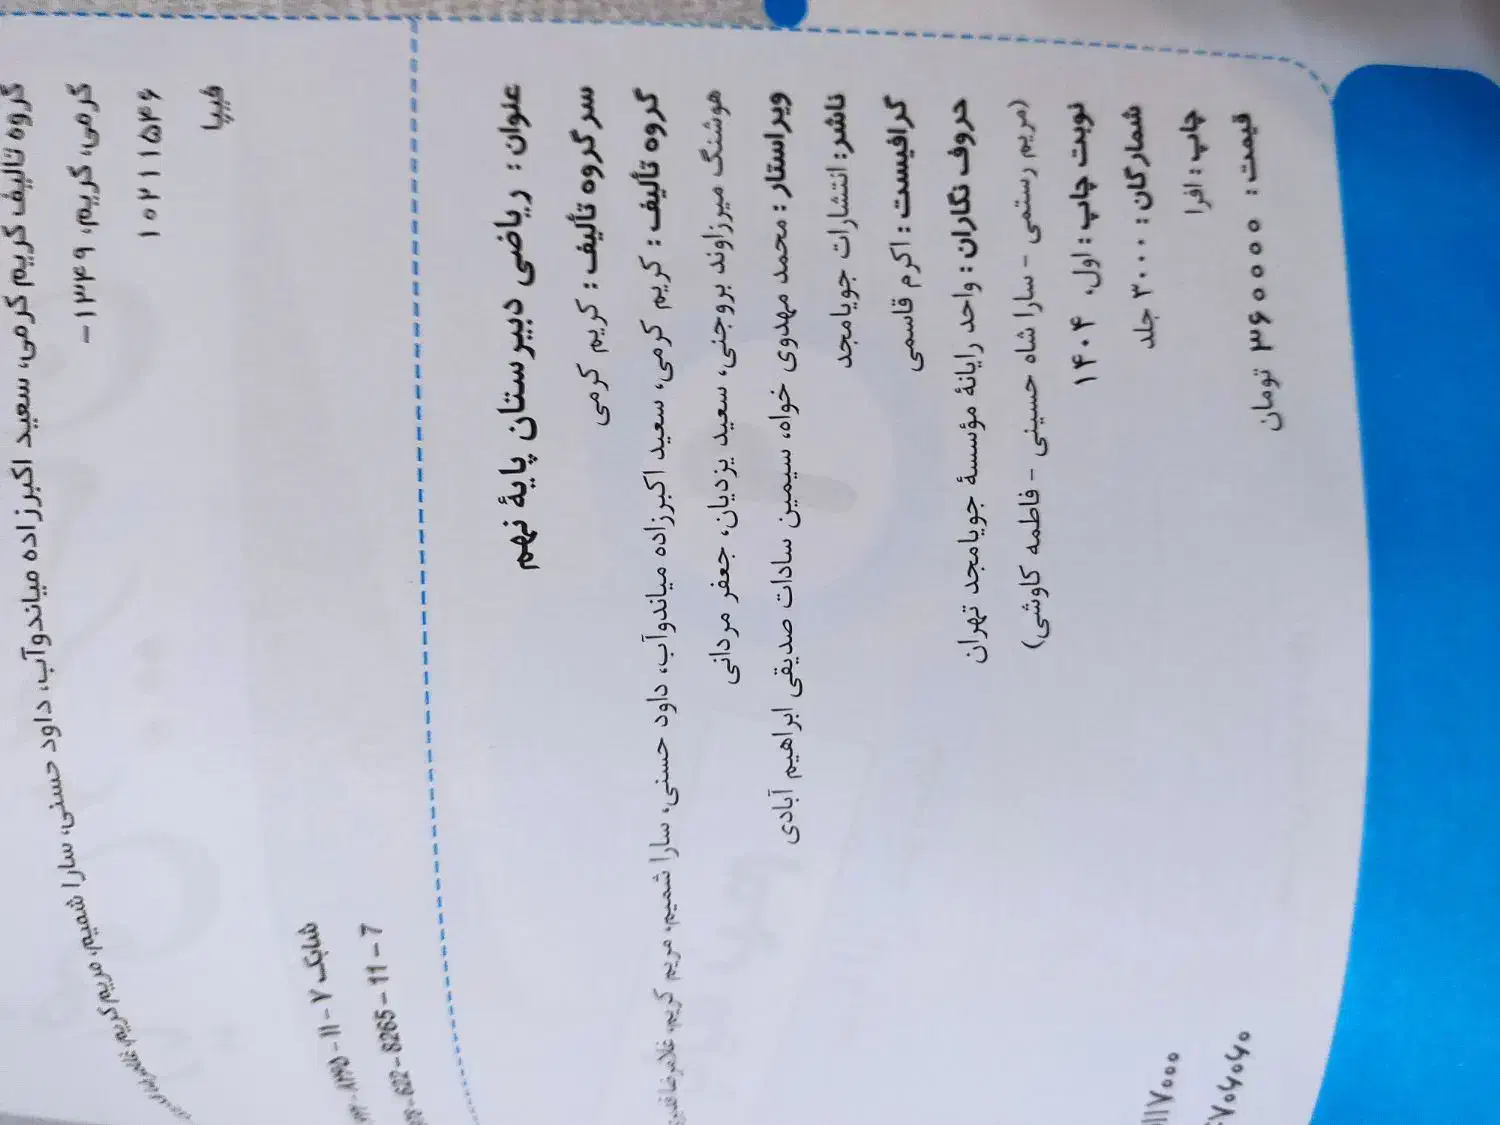 گروه تألیف کریم کرمی، سعید اکبرزاده میاندوآب، داود حسنی، سارا شمیم، مریم کریم،
کرمی، کریم، ۱۳۴۹ -
۱۰۲۱۱۵۴۶
فیپا
شابک ۷ - ۱۱ - ۸۲۶۵
622 - 8265 - 11 - 7
عنوان: ریاضی دبیرستان پایهٔ نهم
سرگروه تألیف: کریم کرمی
گروه تألیف: کریم کرمی، سعید اکبرزاده میاندوآب، داود حسنی، سارا شمیم، مریم کریم، غلامرضا
هوشنگ میرزاوند بروجنی، سعید یزدیان، جعفر مردانی
ویراستار: محمد مهدوی خواه، سیمین سادات صدیقی ابراهیم آبادی
ناشر: انتشارات جویامجد
گرافیست: اکرم قاسمی
حروف نگاران: واحد رایانهٔ مؤسسهٔ جویامجد تهران
(مریم رستمی - سارا شاه حسینی - فاطمه کاوشی)
نوبت چاپ: اول، ۱۴۰۴
شمارگان: ۳۰۰۰ جلد
چاپ: افرا
قیمت: ۳۶۰۰۰۰ تومان
۱۱۷۰۰۰
۷۰۶۰۶۰